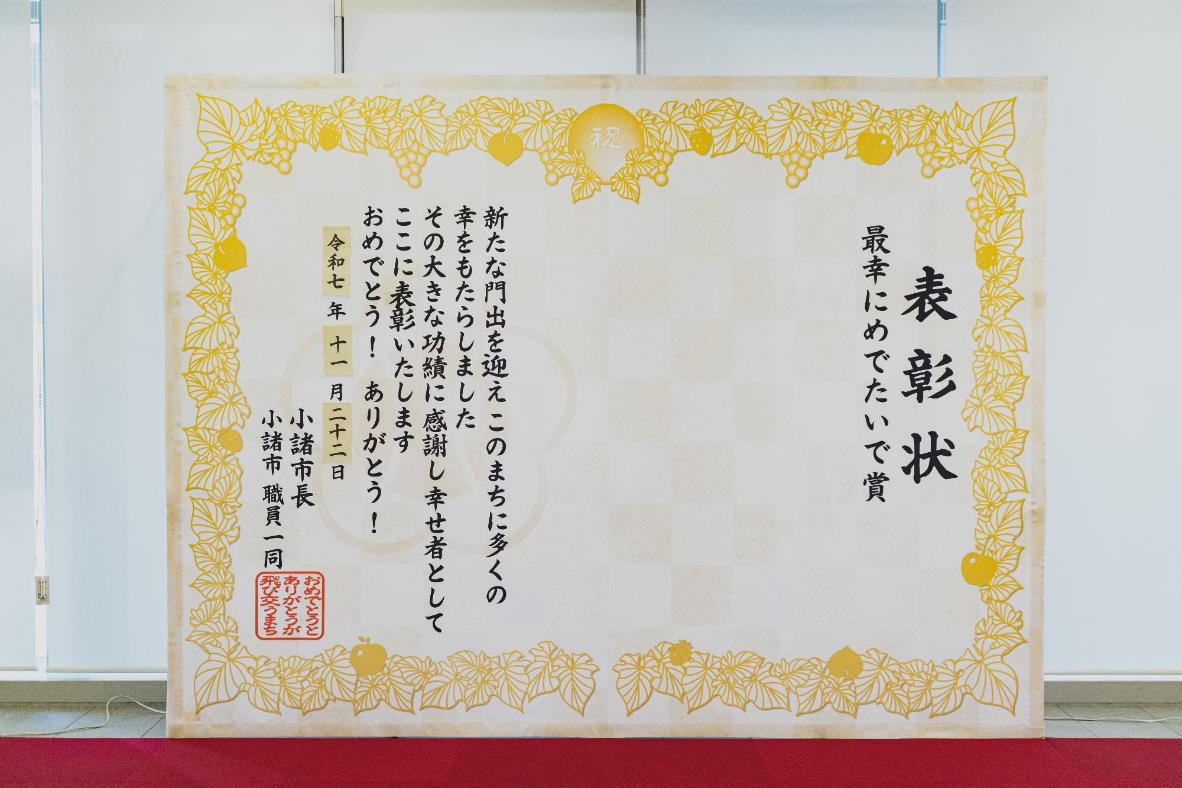 祝
表彰状
最幸にめでたいで賞
新たな門出を迎え このまちに多くの
幸をもたらしました
その大きな功績に感謝し 幸せ者として
ここに表彰いたします
おめでとう！ ありがとう！
令和七 年 十一 月 二十二 日
小諸市長
小諸市 職員一同
おめでとうと
ありがとうが
飛び交うまち